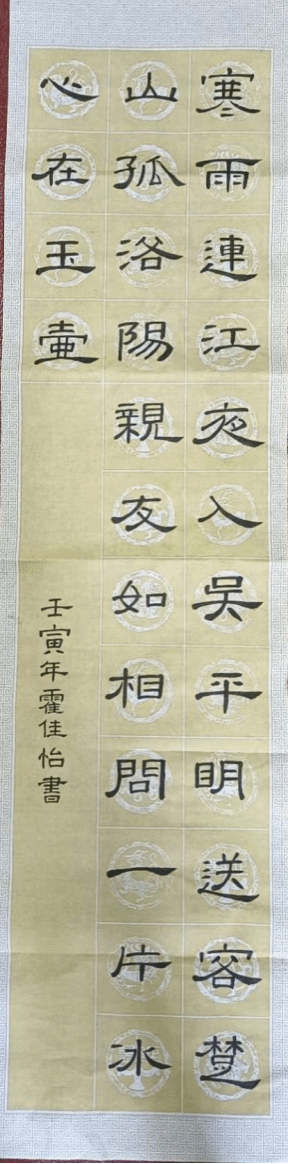 寒雨連江夜入吴平明送客楚
山孤洛陽親友如相問一片冰
心在玉壷
壬寅年霍佳怡書